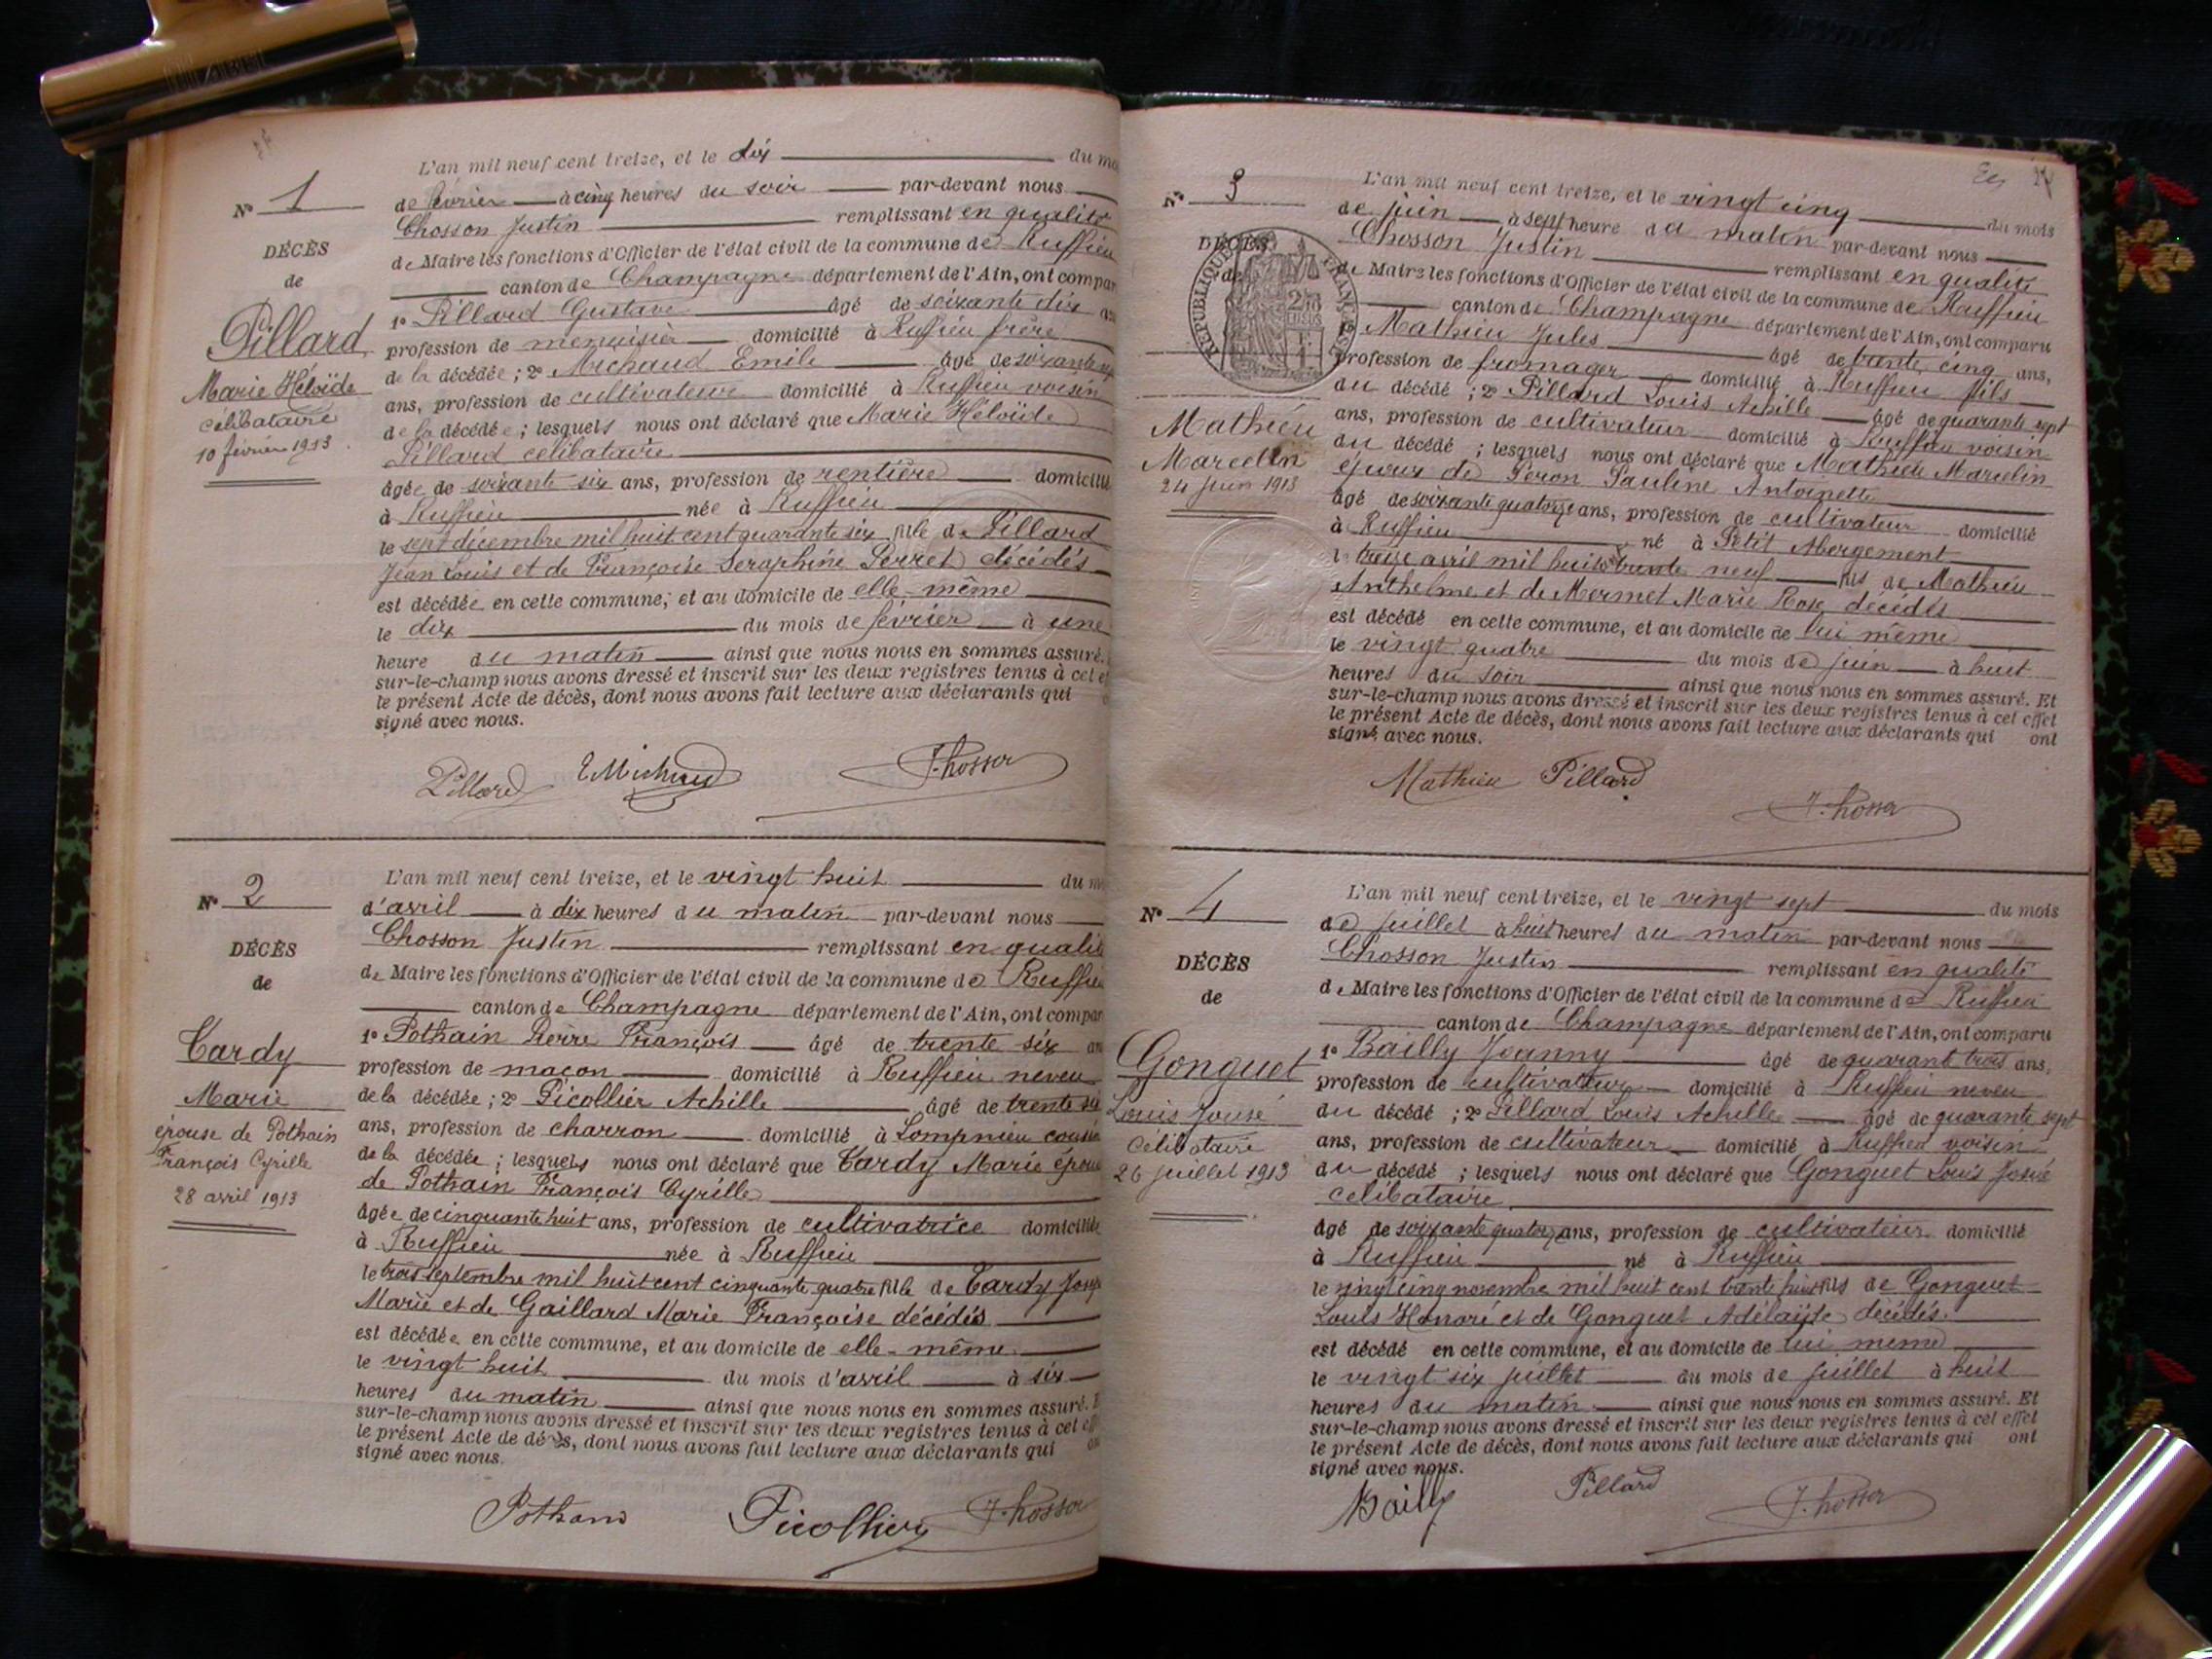 L'an mil neuf cent treize, et le dix du mo
N° 1
de février à cinq heures du soir par-devant nous
Chosson Justin remplissant en qualité
DÉCÈS
de Maire les fonctions d'Officier de l'état civil de la commune de Ruffieu
de
canton de Champagne département de l'Ain, ont compar
Pillard
1° Pillard Gustave âgé de soixante dix an
profession de menuisier domicilié à Ruffieu frère
Marie Héloïde
de la décédée ; 2° Michaud Emile âgé de soixante
célibataire
ans, profession de cultivateur domicilié à Ruffieu voisin
10 février 1913
de la décédée ; lesquels nous ont déclaré que Marie Héloïde
Pillard célibataire
âgée de soixante six ans, profession de rentière domicilié
à Ruffieu née à Ruffieu
le sept décembre mil huit cent quarante six fille de Pillard
Jean Louis et de Françoise Seraphine Perret décédés
est décédée en cette commune, et au domicile de elle-même
le dix du mois de février à une
heure du matin ainsi que nous nous en sommes assuré.
sur-le-champ nous avons dressé et inscrit sur les deux registres tenus à cet e
le présent Acte de décès, dont nous avons fait lecture aux déclarants qui
signé avec nous.
Pillard E Michaud J. Chosson
L'an mil neuf cent treize, et le vingt huit du m
N° 2
d'avril à dix heures du matin par-devant nous
Chosson Justin remplissant en qualité
DÉCÈS
de Maire les fonctions d'Officier de l'état civil de la commune de Ruffieu
de
canton de Champagne département de l'Ain, ont compar
Tardy
1° Pothain Pierre François âgé de trente six an
profession de maçon domicilié à Ruffieu neveu
Marie
de la décédée ; 2° Picollier Achille âgé de trente six
épouse de Pothain
ans, profession de charron domicilié à Lompnieu cousin
François Cyrille
de la décédée ; lesquels nous ont déclaré que Tardy Marie épouse
28 avril 1913
de Pothain François Cyrille
âgée de cinquante huit ans, profession de cultivatrice domicilié
à Ruffieu née à Ruffieu
le trois septembre mil huit cent cinquante quatre fille de Tardy Josep
Marie et de Gaillard Marie Françoise décédés
est décédée en cette commune, et au domicile de elle-même
le vingt huit du mois d'avril à six
heures du matin ainsi que nous nous en sommes assuré. E
sur-le-champ nous avons dressé et inscrit sur les deux registres tenus à cet eff
le présent Acte de décès, dont nous avons fait lecture aux déclarants qui on
signé avec nous.
Pothain Picollier J. Chosson
L'an mil neuf cent treize, et le vingt cinq du mois
N° 3
de juin à sept heure du matin par-devant nous
Chosson Justin remplissant en qualité
DÉCÈS
de
RÉPUBLIQUE FRANÇAISE
de Maire les fonctions d'Officier de l'état civil de la commune de Ruffieu
canton de Champagne département de l'Ain, ont comparu
1° Mathieu Jules âgé de trente cinq ans,
profession de fromager domicilié à Ruffieu fils
du décédé ; 2° Pillard Louis Achille âgé de quarante sept
Mathieu
ans, profession de cultivateur domicilié à Ruffieu voisin
Marcelin
du décédé ; lesquels nous ont déclaré que Mathieu Marcelin
24 juin 1913
époux de Peron Pauline Antoinette
âgé de soixante quatorze ans, profession de cultivateur domicilié
à Ruffieu né à Petit Abergement
le treize avril mil huit ct trente neuf fils de Mathieu
Anthelme et de Mermet Marie Rose décédés
est décédé en cette commune, et au domicile de lui même
le vingt quatre du mois de juin à huit
heures du soir ainsi que nous nous en sommes assuré. Et
sur-le-champ nous avons dressé et inscrit sur les deux registres tenus à cet effet
le présent Acte de décès, dont nous avons fait lecture aux déclarants qui ont
signé avec nous.
Mathieu Pillard
J. Chosson
L'an mil neuf cent treize, et le vingt sept du mois
N° 4
de juillet à huit heures du matin par-devant nous
Chosson Justin remplissant en qualité
DÉCÈS
de Maire les fonctions d'Officier de l'état civil de la commune de Ruffieu
de
canton de Champagne département de l'Ain, ont comparu
Gonguet
1° Bailly Joanny âgé de quarant trois ans,
profession de cultivateur domicilié à Ruffieu neveu
Louis Josué
du décédé ; 2° Pillard Louis Achille âgé de quarante sept
Célibataire
ans, profession de cultivateur domicilié à Ruffieu voisin
26 juillet 1913
du décédé ; lesquels nous ont déclaré que Gonguet Louis Josué
célibataire
âgé de soixante quatorze ans, profession de cultivateur domicilié
à Ruffieu né à Ruffieu
le vingt cinq novembre mil huit cent trente huit fils de Gonguet
Louis Honoré et de Gonguet Adélaïde décédés.
est décédé en cette commune, et au domicile de lui meme
le vingt six juillet du mois de juillet à huit
heures du matin ainsi que nous nous en sommes assuré. Et
sur-le-champ nous avons dressé et inscrit sur les deux registres tenus à cet effet
le présent Acte de décès, dont nous avons fait lecture aux déclarants qui ont
signé avec nous.
Bailly Pillard J. Chosson